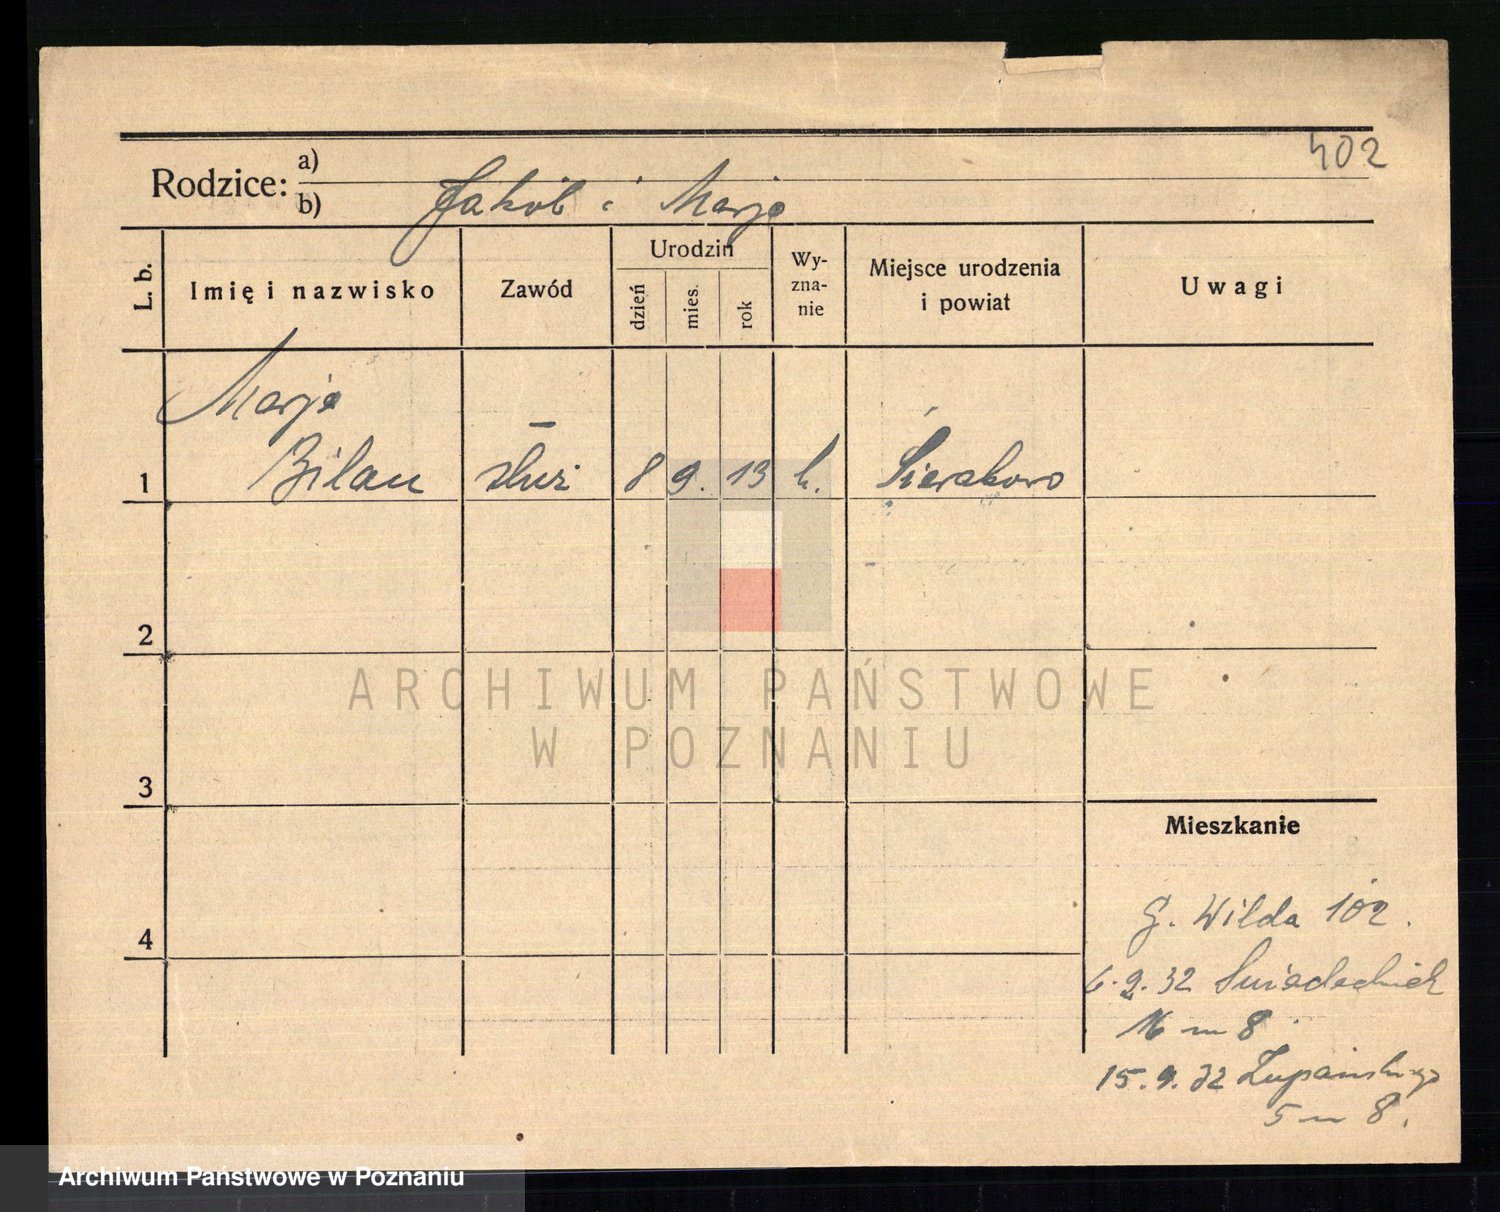 402
Rodzice: a)
b) Jakób i Marja
L. b.
Imię i nazwisko
Zawód
Urodzin
dzień
mies.
rok
Wy-
zna-
nie
Miejsce urodzenia
i powiat
Uwagi
Marja
1 Bilan służ 8 9. 13 k. Sierakowo
2
3
4
Mieszkanie
G. Wilda 102.
6.9.32
16 m 8.
15.9.32 Łupańskiego
5 m 8.
ARCHIWUM PAŃSTWOWE
W POZNANIU
Archiwum Państwowe w Poznaniu